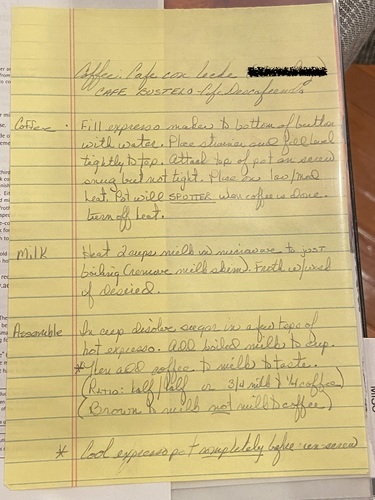 Coffee. Cafe con Leche
CAFE BUSTELO - Cafe Descafeinado
Coffee. Fill expresso maker to bottom of button
with water. Place strainer and fill level
tightly to top. Attach top of pot on screw
snug but not tight. Place on low/med
heat. Pot will SPUTTER when coffee is done.
turn off heat.
Milk Heat 2 cups milk in microwave to just
boiling (remove milk skin). Froth w/
if desired.
Assemble In cup disolve sugar in a few tsps of
hot expresso. Add boiled milk to cup.
* then add coffee to milk to taste.
(Reno: half/half or 3/4 milk & 1/4 coffee)
(Brown to milk not milk to coffee)
* Cool expresso pot completely before un-screw